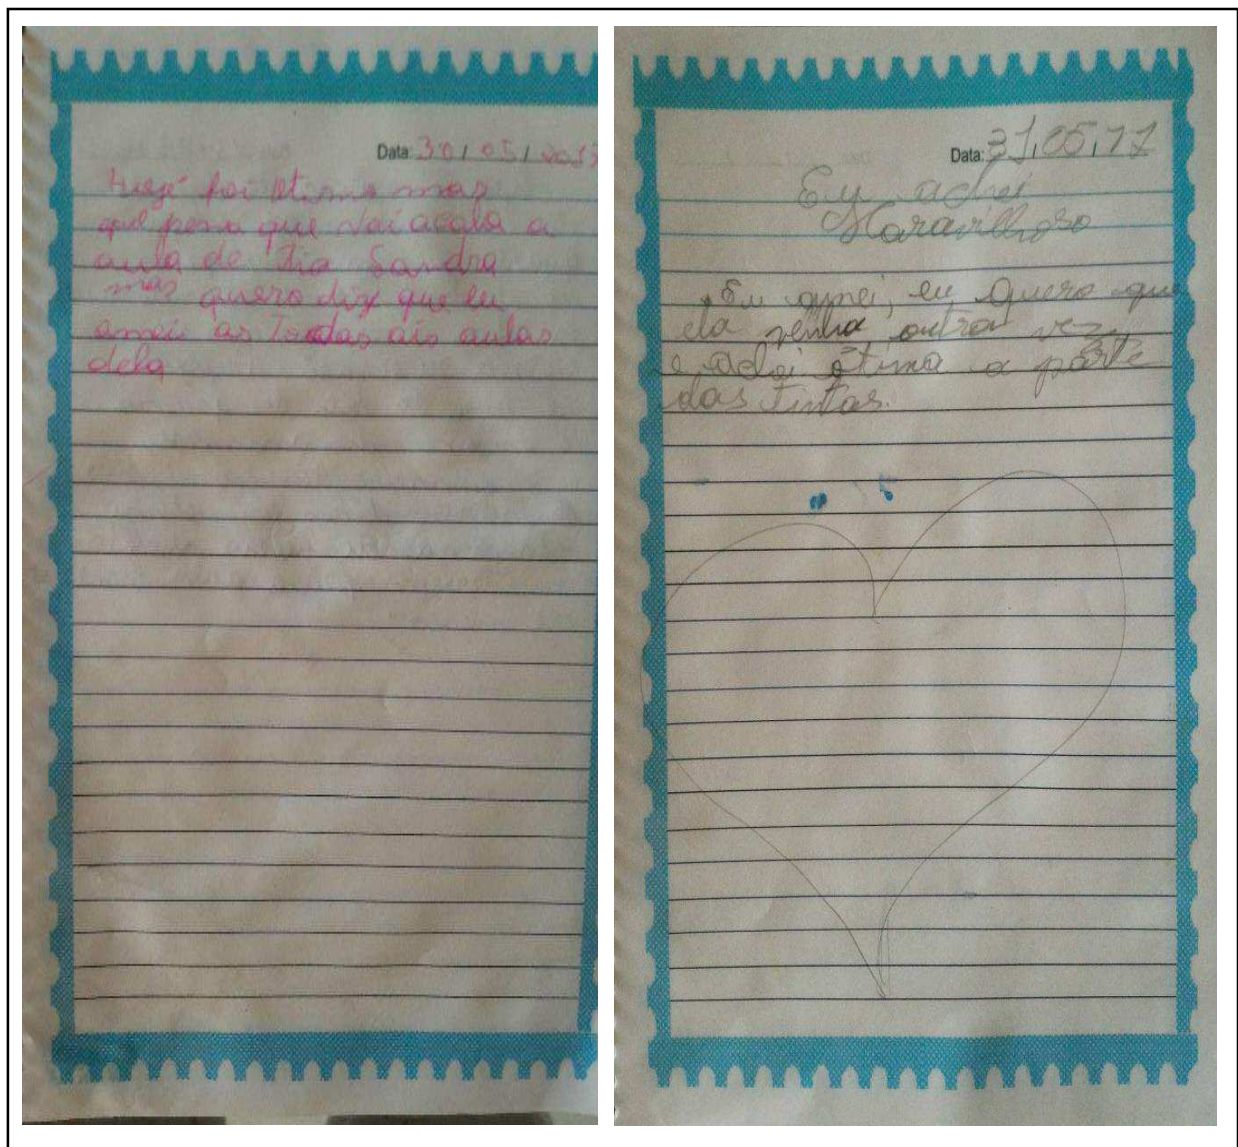 Data: 30/05/2017
Hoje foi otimo mas
que pena que vai acaba a
aula de tia Sandra
mas quero diz que eu
amei as todas ais aulas
dela
Data: 31/05/17
Eu achei
Maravilhoso
Eu amei, eu quero que
ela venha outra vez,
e achei ótima a parte
das tintas.